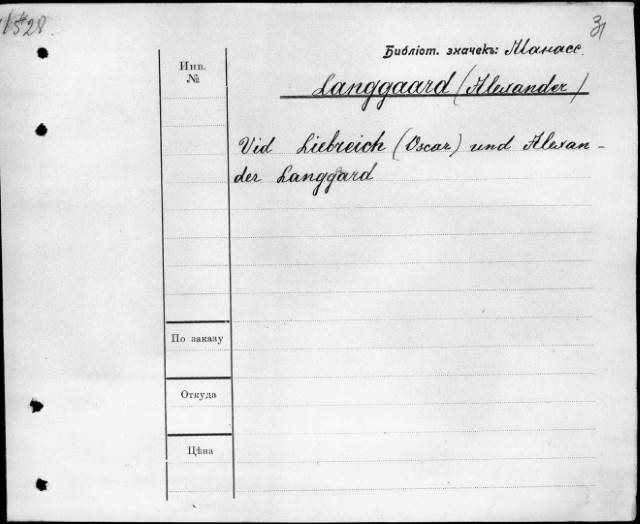 528.
31
Библіот. значекъ: Манасс.
Инв.
№
Langgaard (Alexander)
Vid Liebreich (Oscar) und Alexan-
der Langgard
По заказу
Откуда
Цѣна